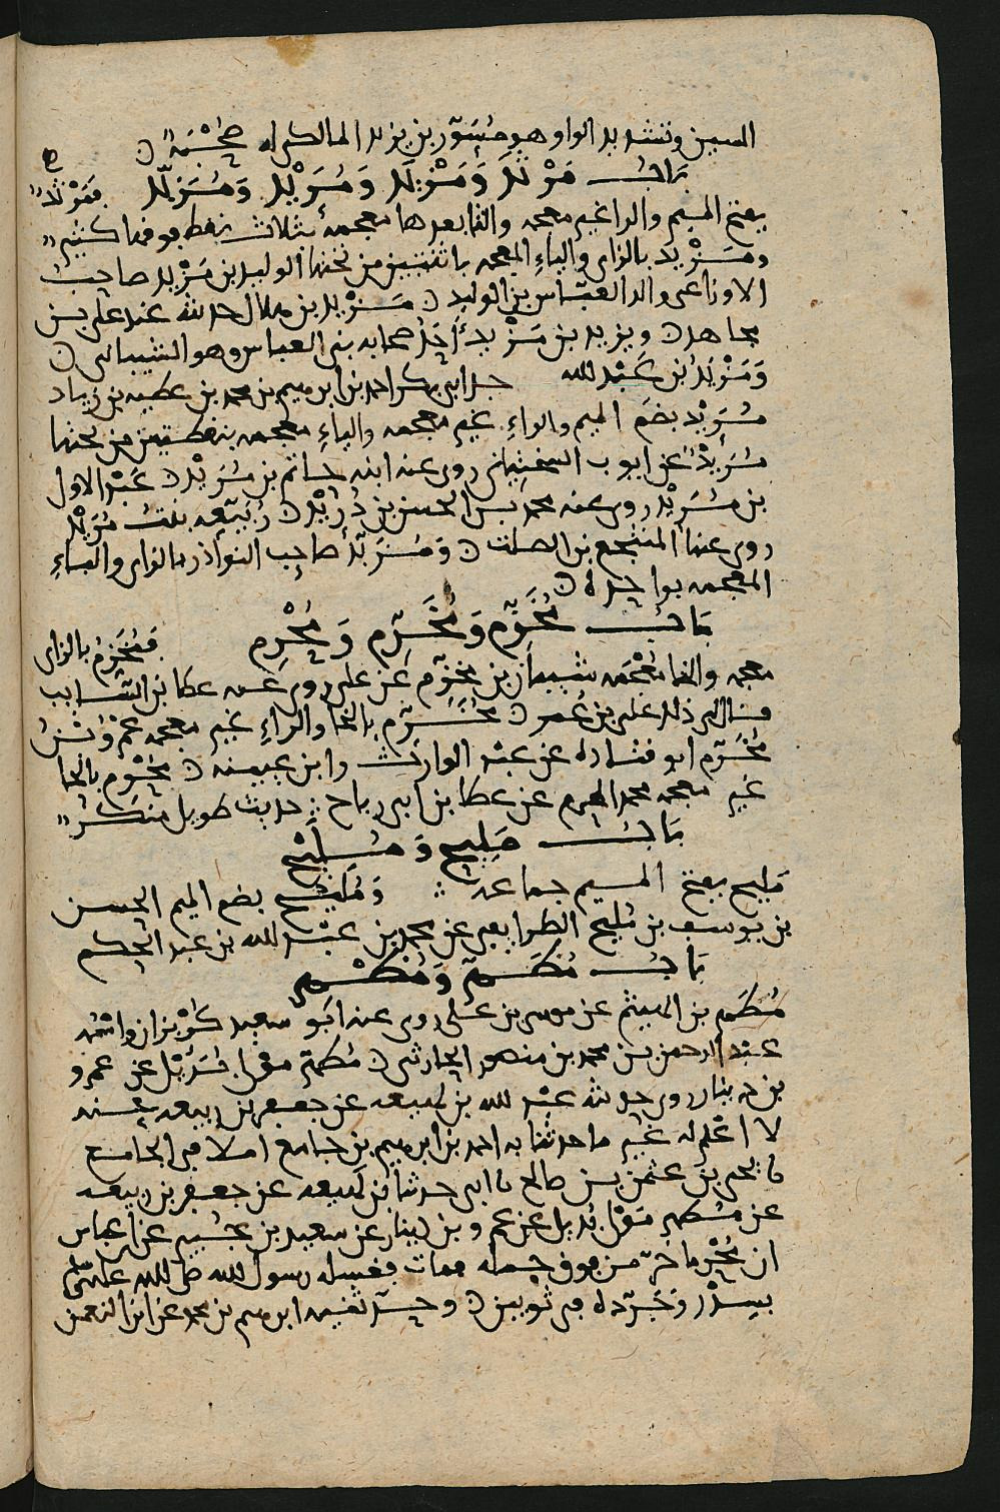 السين وتشديد الواو هو مُسَوَّر بن يزيد المالكي له صُحْبَةٌ ن
بَابُ مَرْثَد وَمَزْيَد وَمُرَيْد وَمُزَبِّد فمَرْثَدٌ
بفتح الميم والرا غير معجمه والثا بعدها معجمة بثلاث نقط فوقها كثير
ومَزْيَد بالزاي والياءِ المعجمه باثنتين من تحتها الوليد بن مَزْيَد صاحب
الاوزاعي والد العبّاس بن الوليد ن مَزْيَد بن هلال حدث عنه علي بن
مجاهد ن ويزيد بن مَزْيد أحَدُ صحابه بني العباس وهو الشيباني ن
وَمَزْيَدُ بن عَبْد الله جد ابي بكر احمد بن ابرهيم بن محمد بن عطيه بن زياد
مُرَيْد بضم الميم والراءِ غير معجمه والياءِ معجمه بنقطتين من تحتها
مُرَيْدٌ عن ايوب السختياني روى عنه ابنه حاتم بن مُرَيْد ن عَبْد الاول
بن مُرَيْد روى عنه محمد بن الحسن بن دُرَيْد ن رَبيعه بنت مُرَيْد
روى عنها المنتجع بن الصلت ن وَمُزَبِّد صاحب النوادر بالزاي والباءِ
المعجمه بواحدة ن
بَابُ مُخَزَّم وَمُخَرِّم وَمُحْرِم فَمُخَزَّم بالزاي
معجمه والخا مُعْجَمَه شيبان بن مُخَزَّم عن علي روى عنه عطا بن السَّايب
قال لي ذلك علي بن عُمر ن مُخَرِّم بالخا والراءِ غير معجمه
مُخَرِّم ابو قتاده عن عبد الوارث وابن عيينه ن مُحْرِم بالحا
غير معجمه محمد المحرم عن عطا بن ابي رباح حديث طويل منكرٌ
بَابُ مَلِيح وَمُلَيْح
مَليح بفتح الميم جماعه وَمُليح بضم الميم الحسن
بن يوسف بن مُليح الطرايفي عن محمد بن عَبْد الله بن عبد الحكم
بَابُ مُطَهَّر وَمُطْهِر
مُطَهّر بن الهيثم عن موسى بن عُلَي روى عنه ابو سعيد كُرْبزان واسمه
عبد الرحمن بن محمد بن منصور الحارثي ن مُطهر مولى عن عمرو
بن دينار روى حديثه عبد الله بن لهيعه عن جعفر بن ربيعه عنه
لا اعْلم له غير ما حدثنا به احمد بن ابرهيم بن جامع املا في الجامع
نا يحيى بن عثمن بن صالح نا ابي حدثنا بن لهيعه عن جعفر بن ربيعه
عن مُطهر مَوْلى عن عمرو بن دينار عن سعيد بن جُبَير عن ابن عباس
ان مُحْرِما خَرَّ من فوق جمله فمات فغسله رسول الله صلى الله عليه وسلم
بسِدْر وَجَرَّده في ثوبين ن ابرهيم بن محمد عن ابن النعمن